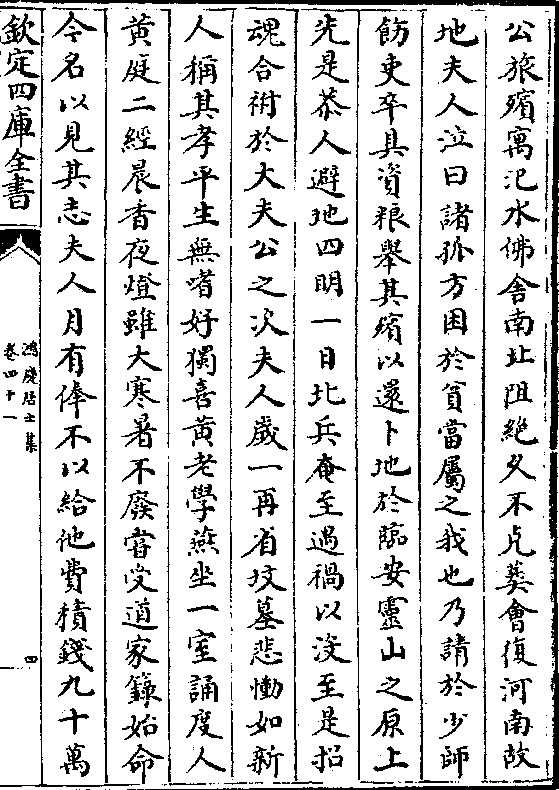 公旅殯寓汜水佛舍南北阻絶久不克葬會復河南故
地夫人泣曰諸孤方困於貧當屬之我也乃請於少師
飭吏卒具資粮舉其殯以還卜地於臨安靈山之原上
先是恭人避地四明一日北兵奄至遇禍以沒至是招
魂合祔於大夫公之次夫人歲一再省墳墓悲慟如新
人稱其孝平生無嗜好獨喜黃老學燕坐一室誦度人
黄庭二經晨香夜燈雖大寒暑不廢嘗受道家籙始命
今名以見其志夫人月有俸不以給他費積錢九十萬
欽定四庫全書
鴻慶居士集
卷四十一
四